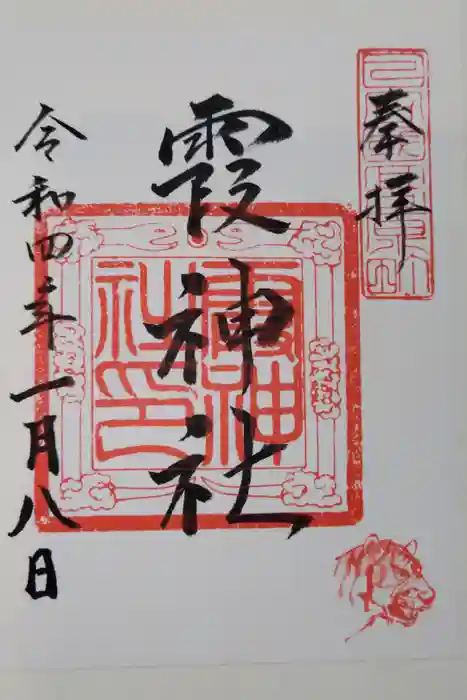 奉拝
霞神社
霞神社印
令和四年一月八日